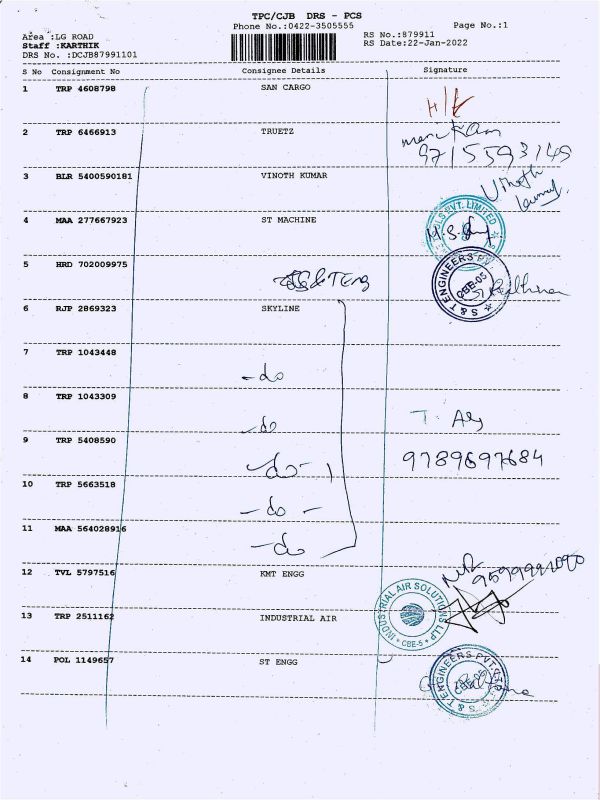 TPC/CJB DRS - PCS
Phone No.:0422-3505555 Page No.:1
Area :LG ROAD RS No.:879911
Staff :KARTHIK RS Date:22-Jan-2022
DRS No. :DCJB87991101
S No Consignment No Consignee Details Signature
1 TRP 4608798 SAN CARGO
2 TRP 6466913 TRUETZ
9715593149
3 BLR 5400590181 VINOTH KUMAR
Vinoth
Kumar
4 MAA 277667923 ST MACHINE
LS PVT. LIMITED
5 HRD 702009975
S & T ENGINEERS PVT.
CBE-05
6 RJP 2869323 SKYLINE
7 TRP 1043448
-do
8 TRP 1043309
-do
9 TRP 5408590
9789697684
-do-
10 TRP 5663518
-do-
11 MAA 564028916
-do
12 TVL 5797516 KMT ENGG
13 TRP 2511162 INDUSTRIAL AIR
INDUSTRIAL AIR SOLUTIONS LLP
CBE-5
14 POL 1149657 ST ENGG
S & T ENGINEERS PVT.LTD